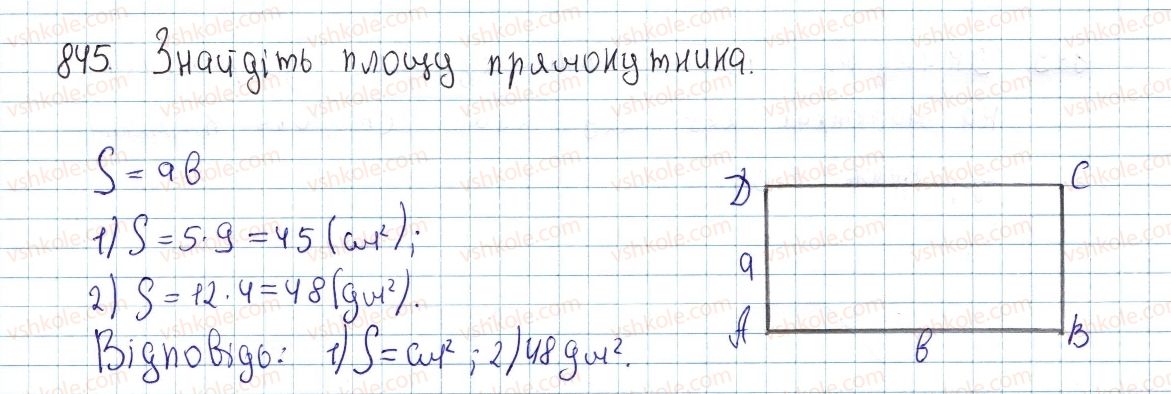 845. Знайдіть площу прямокутника.
S = ab
1) S = 5·9 = 45 (см²);
2) S = 12·4 = 48 (дм²).
Відповідь: 1) S = см²; 2) 48 дм².
D C
a
A B
b
vshkole.com